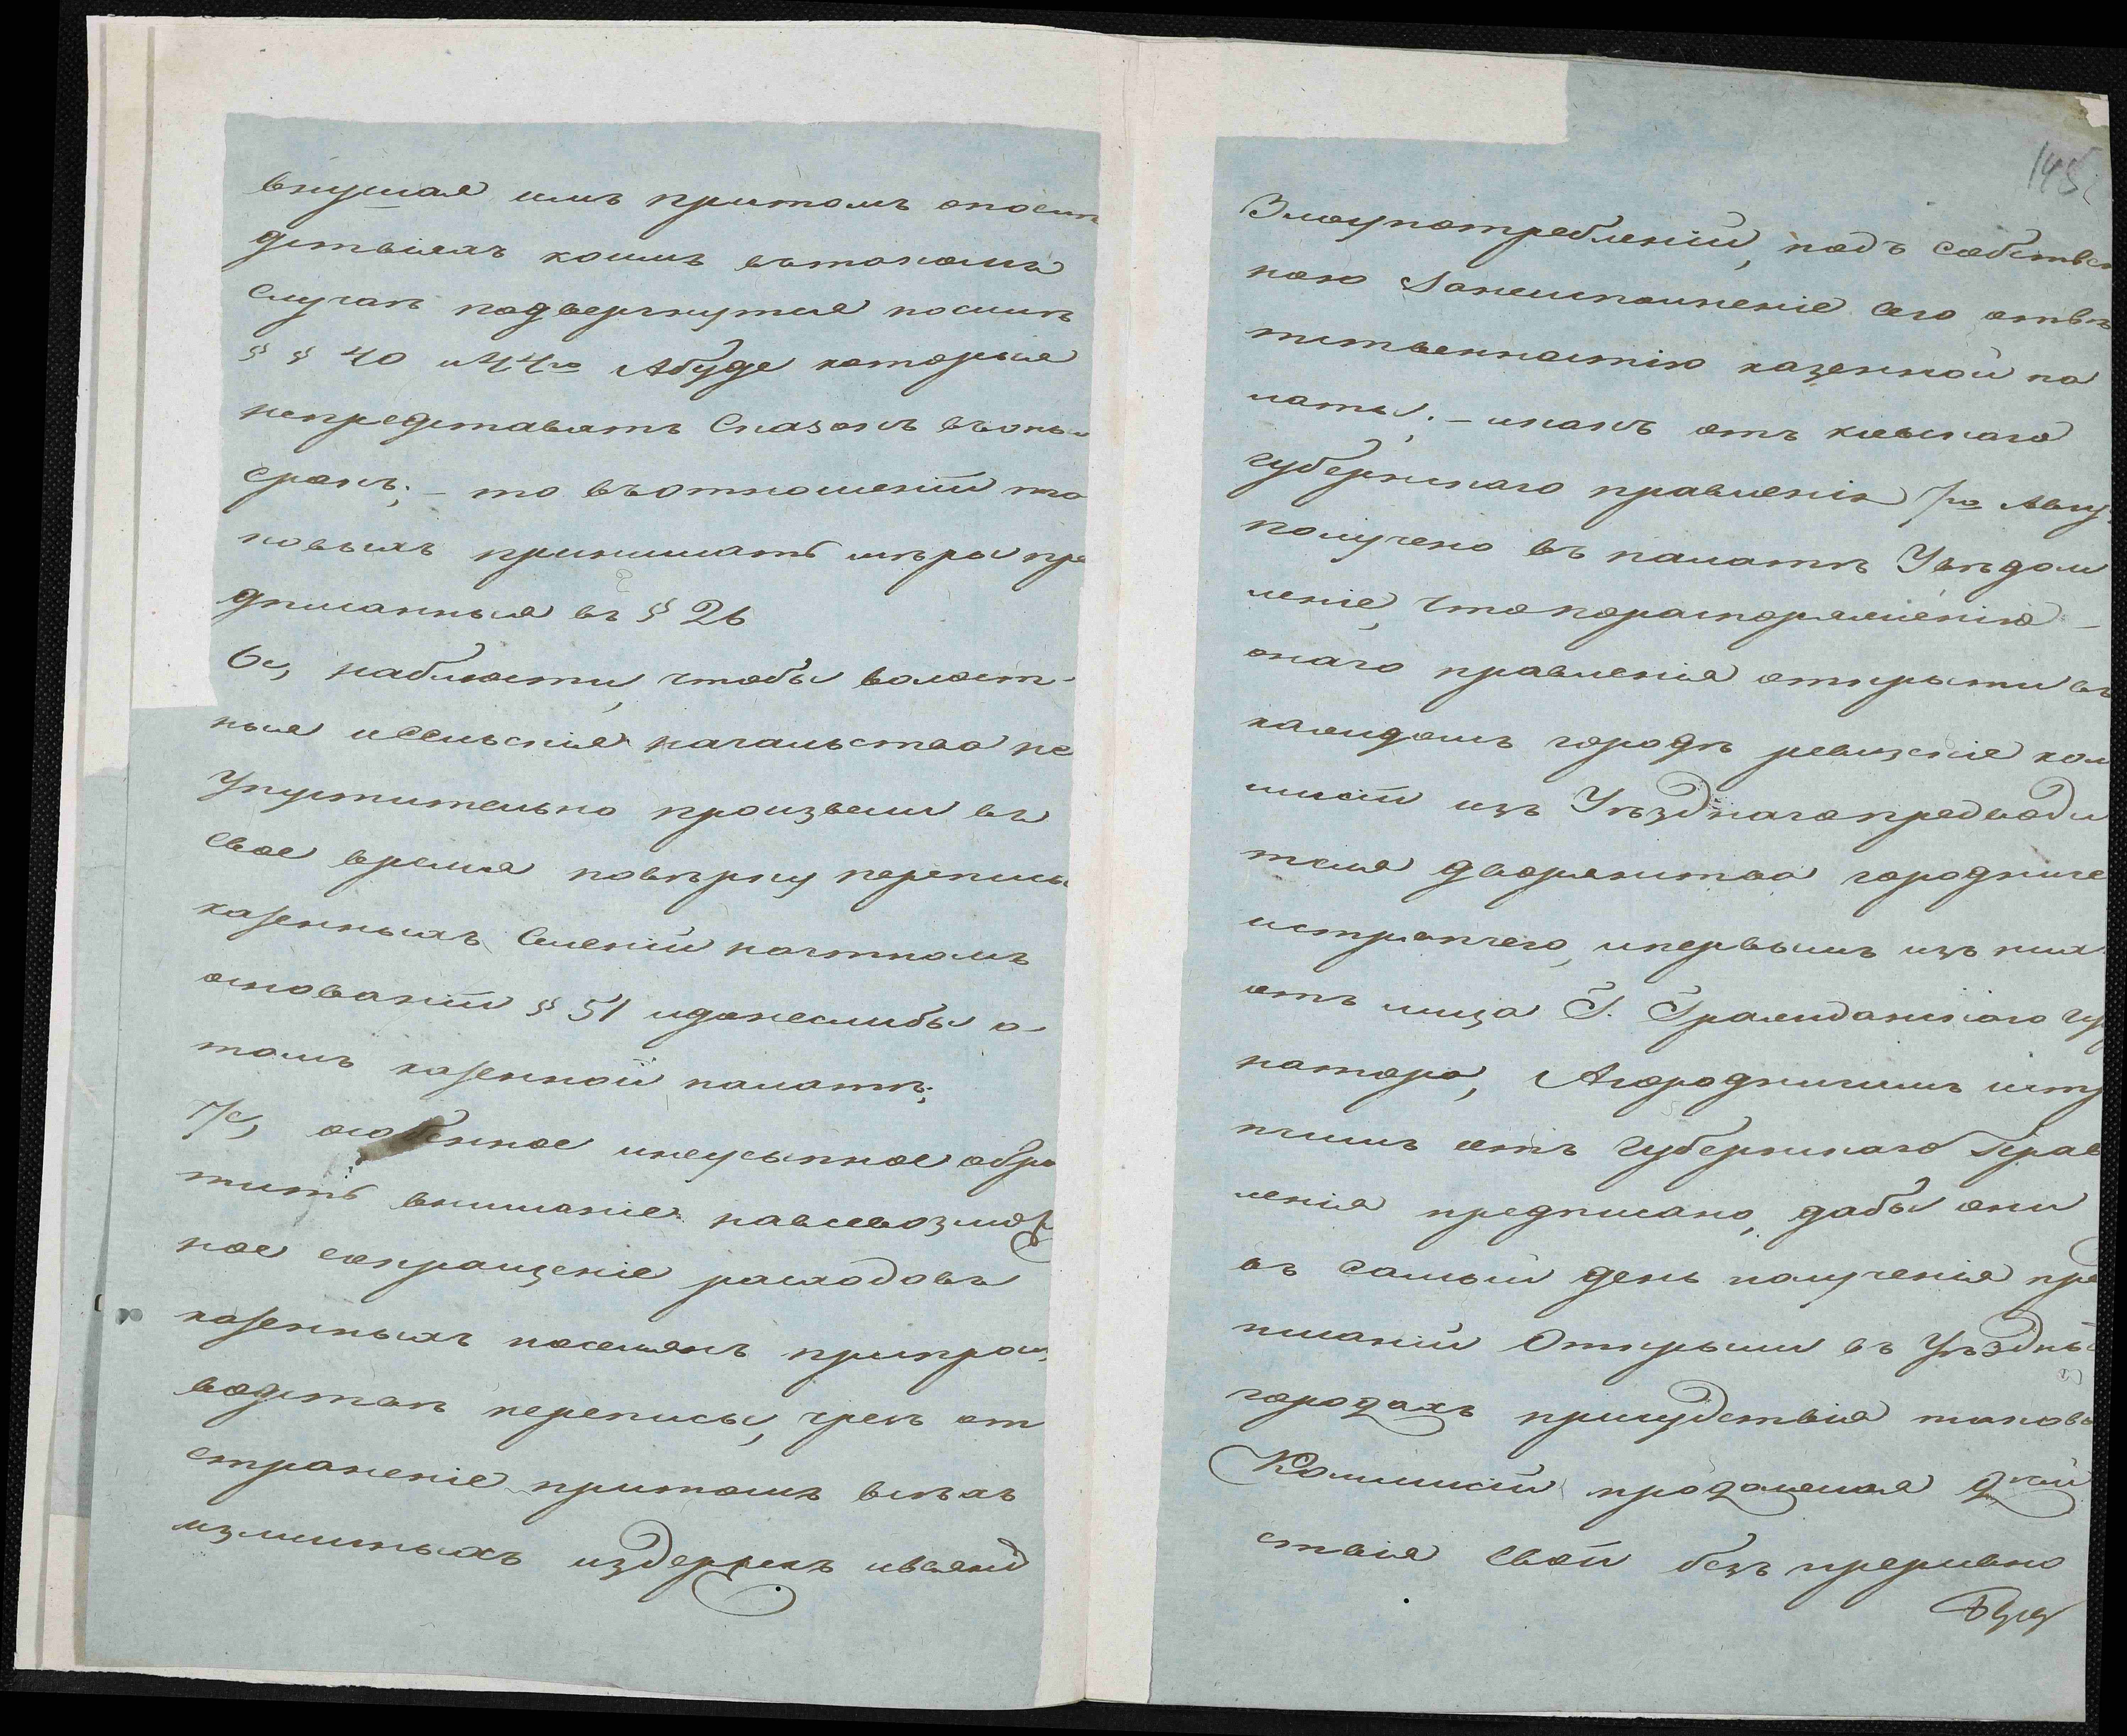 внушая имъ притомъ опослѣ
дствіяхъ коимъ вътакомъ
Случаѣ подвергнутся посилѣ
§ § 40 и 44го Абуде которые
непредставятъ Сказокъ въоны
срокъ; – то въотношеніи та
ковыхъ принимать мѣры пре
дписанныя въ § 26
6е, наблюсти, чтобы волост-
ныя иСельскія начальства не
Упустительно произвели въ
Свое время повѣрку переписи
казенныхъ Селеній наточномъ
основаніи § 51 идонеслибы о-
томъ казенной палатѣ;
7е, особенное инеусыпное обра
тить вниманіе навсевозмож
ное сокращеніе расходовъ
казенныхъ поселянъ припроиз
водствѣ переписи, чрезъ от
страненіе притомъ всѣхъ
излишныхъ издержекъ ивсякихъ
145
Злоупотребленій, подъ собствен
ною Занеисполненіе Сего отвѣ
тственностію казенной па
латы; – икакъ отъ кіевскаго
губернскаго правленія 7го Авгу
получено въ палатѣ Увѣдом
леніе, чтопораспоряженію –
онаго правленія открыты въ
каждомъ городѣ ревизскіе ком
мисіи изъ Уѣзднагопредводи
теля дворянства городниче
истряпчего, ипервымъ изъ них
отъ лица Г. Гражданскаго губ
натора, Агородничимъ истр
пчимъ отъ Губернскаго Прав
ленія предписано, дабы они
въ самый день полученія пре
писаній Открыли въ Уѣздны
городахъ присудствія таковы
Коммисій продолжая дѣй
ствія Свои безъ прерывно